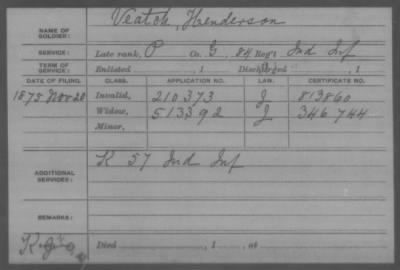 NAME OF SOLDIER: Veatch, Henderson
SERVICE: Late rank, P Co. G, 84 Reg't Ind Inf
TERM OF SERVICE: Enlisted , 1 Discharged , 1
DATE OF FILING. CLASS. APPLICATION NO. LAW. CERTIFICATE NO.
1875 Nov 20 Invalid, 210373 J 813860
Widow, 513392 J 346744
Minor,
ADDITIONAL SERVICES: K 57 Ind Inf
REMARKS:
Died , 1 , at